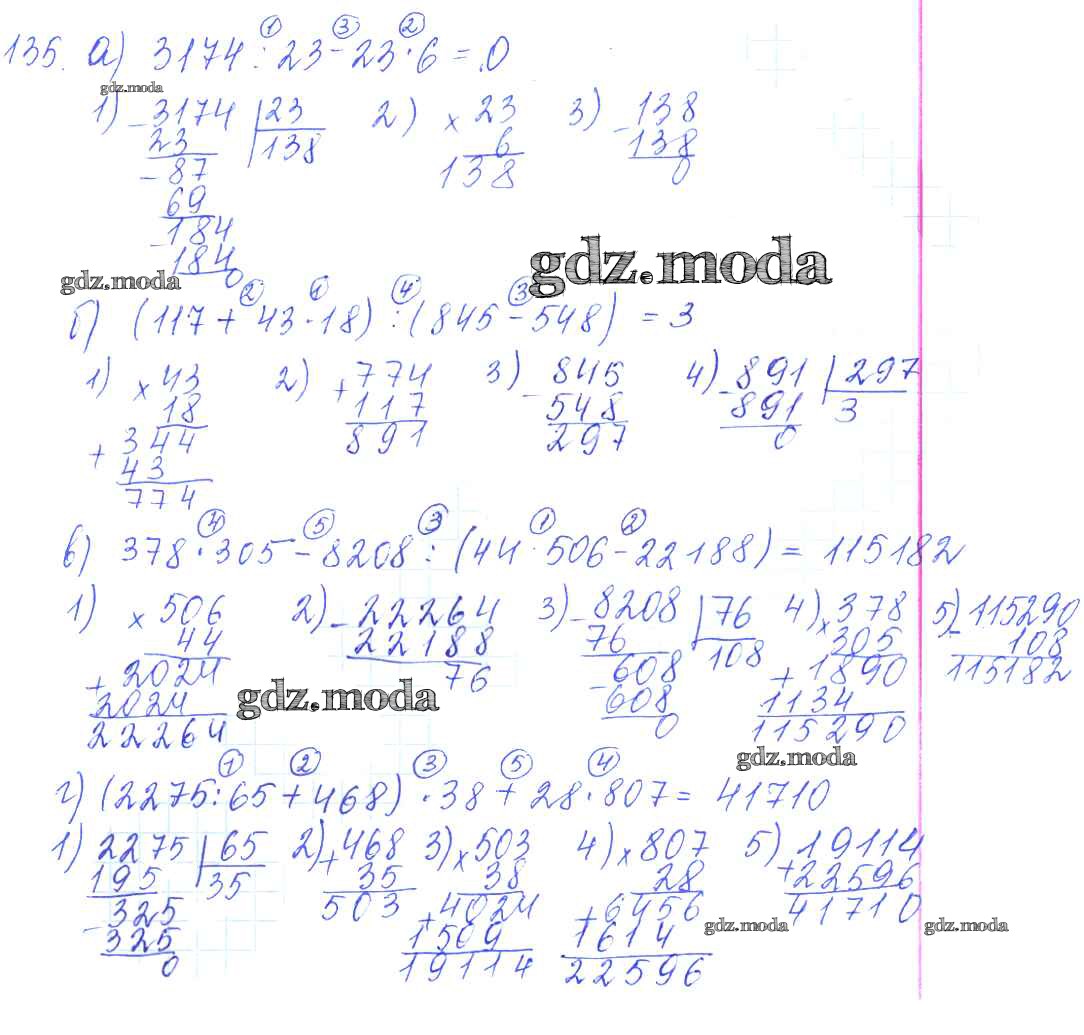 ① ③ ②
135. а) 3174 : 23 - 23 · 6 = 0
gdz.moda
1) - 3174 | 23 2) × 23 3) - 138
23 138 6 138
- 87 138 0
69
- 184
184
0
gdz.moda
gdz.moda
② ① ④ ③
б) (117 + 43 · 18) : (845 - 548) = 3
1) × 43 2) + 774 3) - 845 4) - 891 | 297
18 117 548 891 3
+ 344 891 297 0
43
774
④ ⑤ ③ ① ②
в) 378 · 305 - 8208 : (44 · 506 - 22188) = 115182
1) × 506 2) - 22264 3) - 8208 | 76 4) × 378 5) - 115290
44 22188 76 108 305 108
+ 2024 76 - 608 + 1890 115182
2024 608 1134
22264 0 115290
gdz.moda
gdz.moda
① ② ③ ⑤ ④
г) (2275 : 65 + 468) · 38 + 28 · 807 = 41710
1) 2275 | 65 2) + 468 3) × 503 4) × 807 5) + 19114
195 35 35 38 28 22596
- 325 503 + 4024 + 6456 41710
325 1509 1614
0 19114 22596
gdz.moda gdz.moda